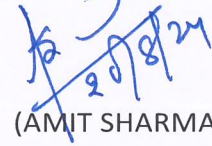 20/8/24
(AMIT SHARMA